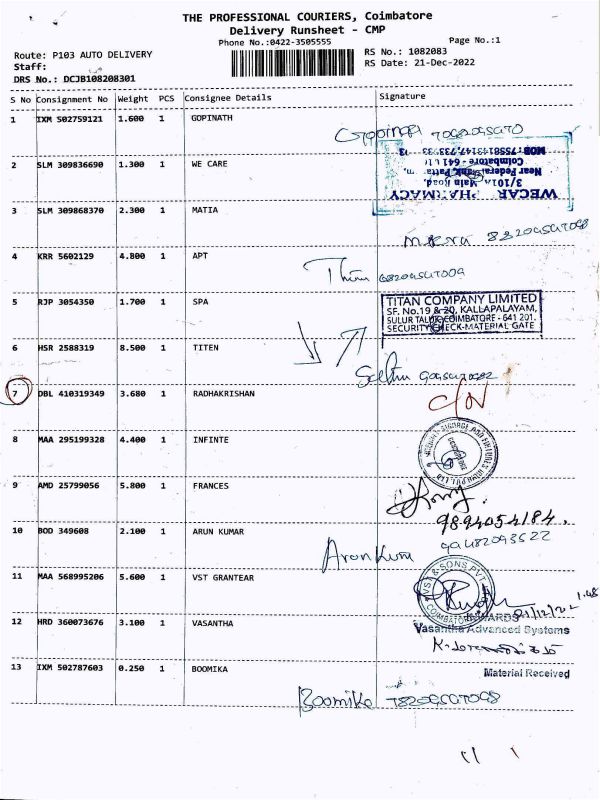 THE PROFESSIONAL COURIERS, Coimbatore
Delivery Runsheet - CMP
Phone No.:0422-3505555
Page No.:1
Route: P103 AUTO DELIVERY
RS No.: 1082083
Staff:
RS Date: 21-Dec-2022
DRS No.: DCJB108208301
S No Consignment No Weight PCS Consignee Details Signature
1 IXM 502759121 1.600 1 GOPINATH
2 SLM 309836690 1.300 1 WE CARE
WECAR PHARMACY
3/101A Main Road,
Near Federal Bank, Patta
Coimbatore - 641
3 SLM 309868370 2.300 1 MATIA
4 KRR 5602129 4.800 1 APT
5 RJP 3054350 1.700 1 SPA
TITAN COMPANY LIMITED
SF. No.19 & 20, KALLAPALAYAM,
SULUR TALUK, COIMBATORE - 641 201.
SECURITY CHECK-MATERIAL GATE
6 HSR 2588319 8.500 1 TITEN
7 DBL 410319349 3.680 1 RADHAKRISHAN
C/N
8 MAA 295199328 4.400 1 INFINTE
9 AMD 25799056 5.800 1 FRANCES
9894054184.
10 BOD 349608 2.100 1 ARUN KUMAR
Arun Kum
11 MAA 568995206 5.600 1 VST GRANTEAR
VST & SONS PVT
COIMBATORE
21/12/22
1.48
12 HRD 360073676 3.100 1 VASANTHA
INWARDS
Vasantha Advanced Systems
Material Received
13 IXM 502787603 0.250 1 BOOMIKA
Boomika